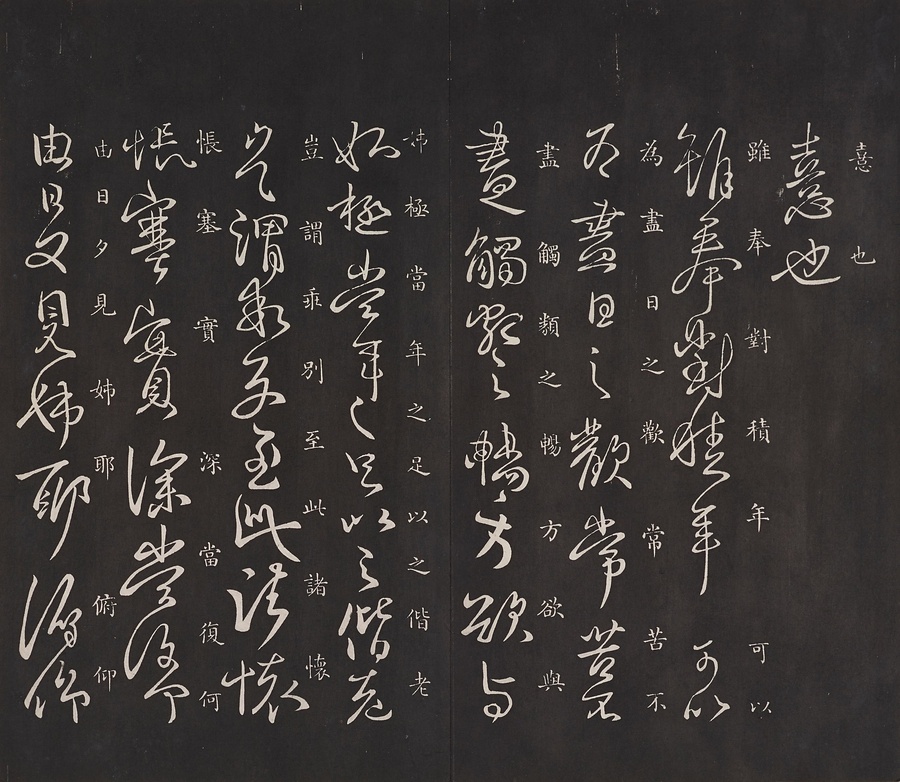 憙也
憙也
雖奉對積年可以
雖奉對積年可以
為盡日之歡常苦不
為盡日之歡常苦不
盡觸類之暢方欲與
盡觸類之暢方欲與
姊極當年之足以之偕老
姊極當年之足以之偕老
豈謂乖別至此諸懷
豈謂乖別至此諸懷
悵塞實深當復何
悵塞實深當復何
由日夕見姊耶俯仰
由日夕見姊耶俯仰